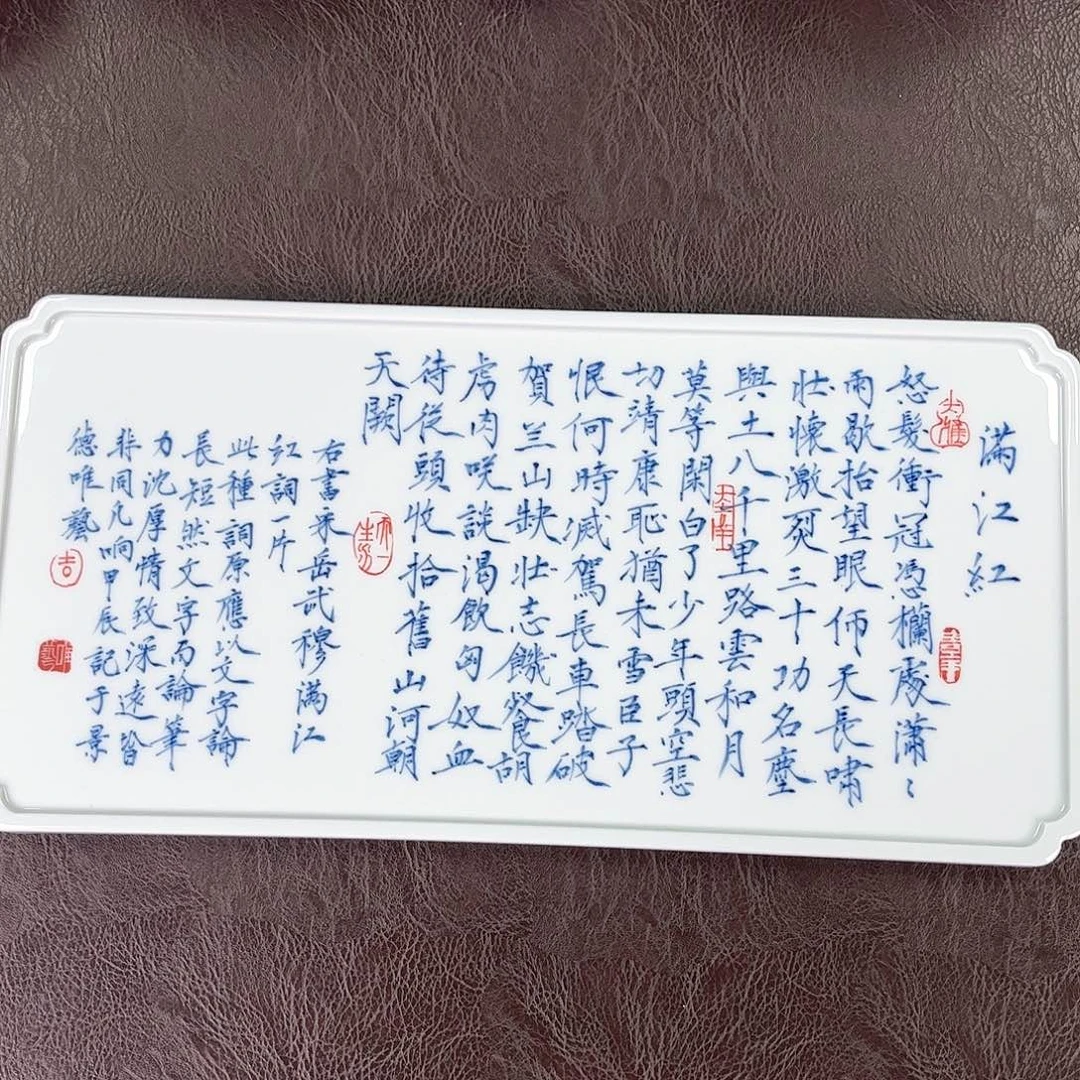 滿江紅
怒髮衝冠憑欄處瀟〻
雨歇抬望眼仰天長嘯
壯懷激烈三十功名塵
與土八千里路雲和月
莫等閑白了少年頭空悲
切靖康恥猶未雪臣子
恨何時滅駕長車踏破
賀兰山缺壯志饑餐胡
虜肉咲談渴飲匈奴血
待從頭收拾舊山河朝
天闕
右書宋岳武穆滿江
红詞一片
此種詞原應以文字論
長短然文字而論筆
力沈厚情致深遠皆
非同凡响甲辰記于景
德唯藝
吉